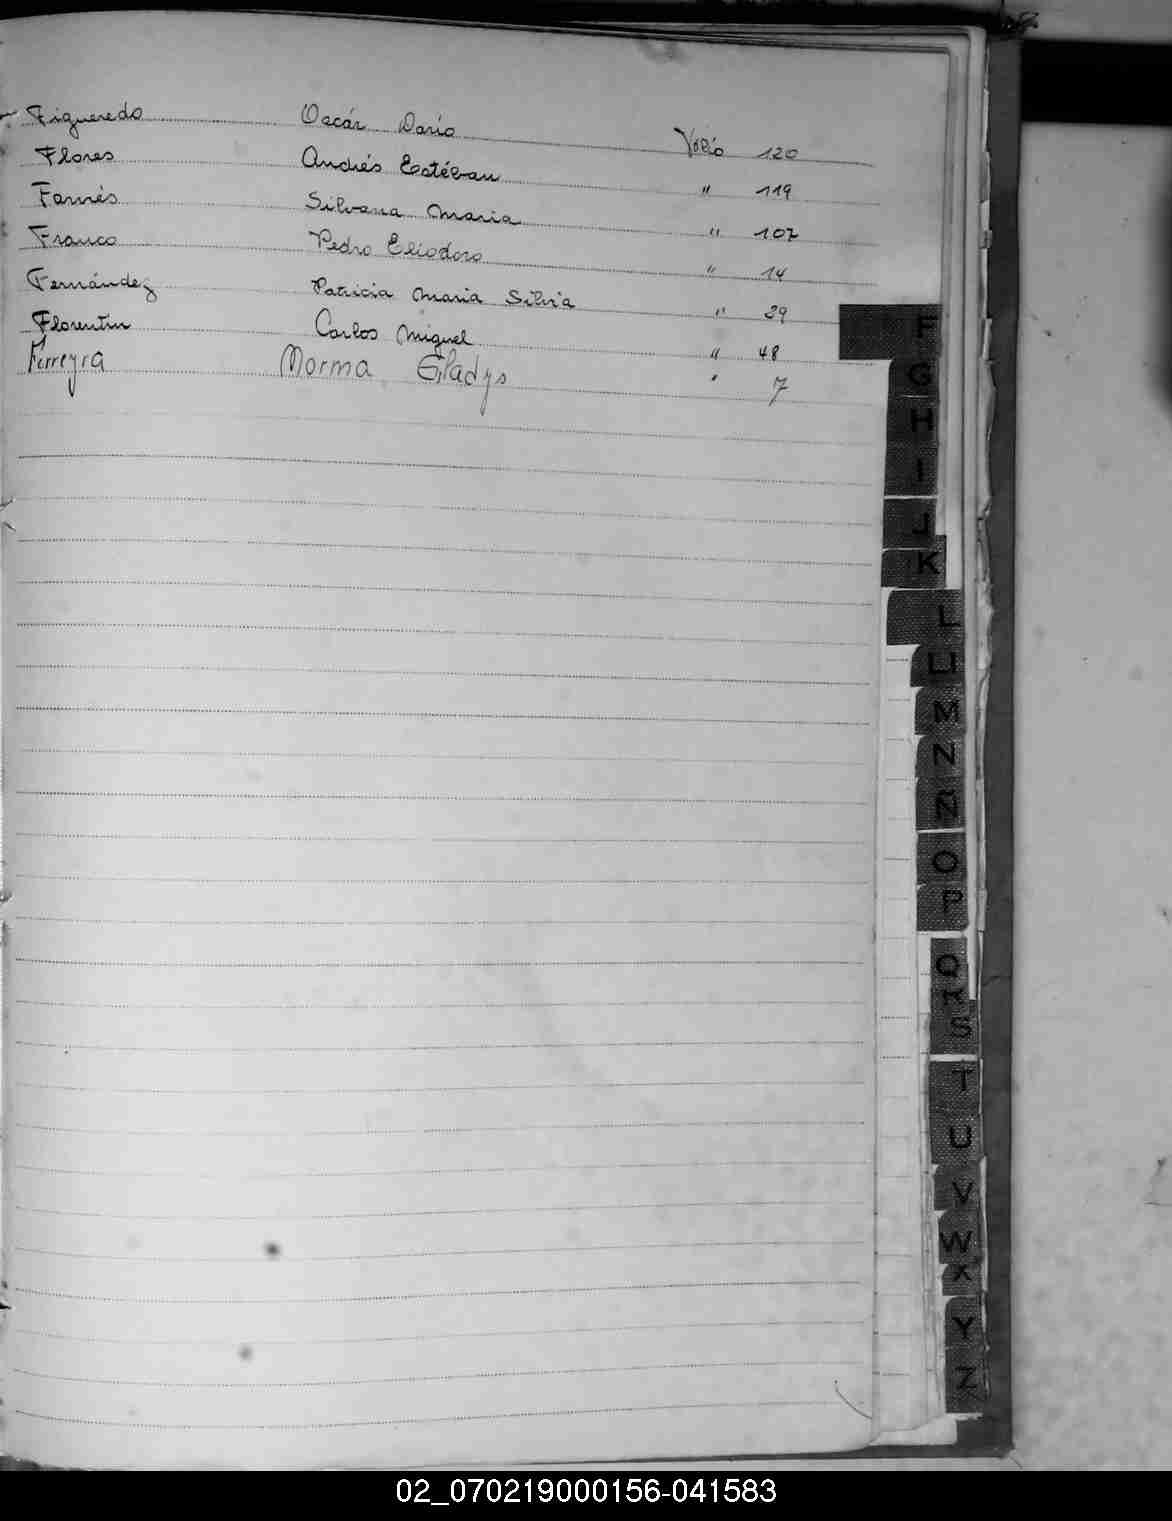 Figueredo Oscár Darío Folio 120
Flores Andrés Estéban " 119
Farnés Silvana Maria " 107
Franco Pedro Eliodoro " 14
Fernández Patricia Maria Silvia " 29
Florentin Carlos Miguel " 48
Ferreyra Norma Gladys " 7
F
G
H
I
J
K
L
LL
M
N
Ñ
O
P
Q
R
S
T
U
V
W
X
Y
Z
02_070219000156-041583